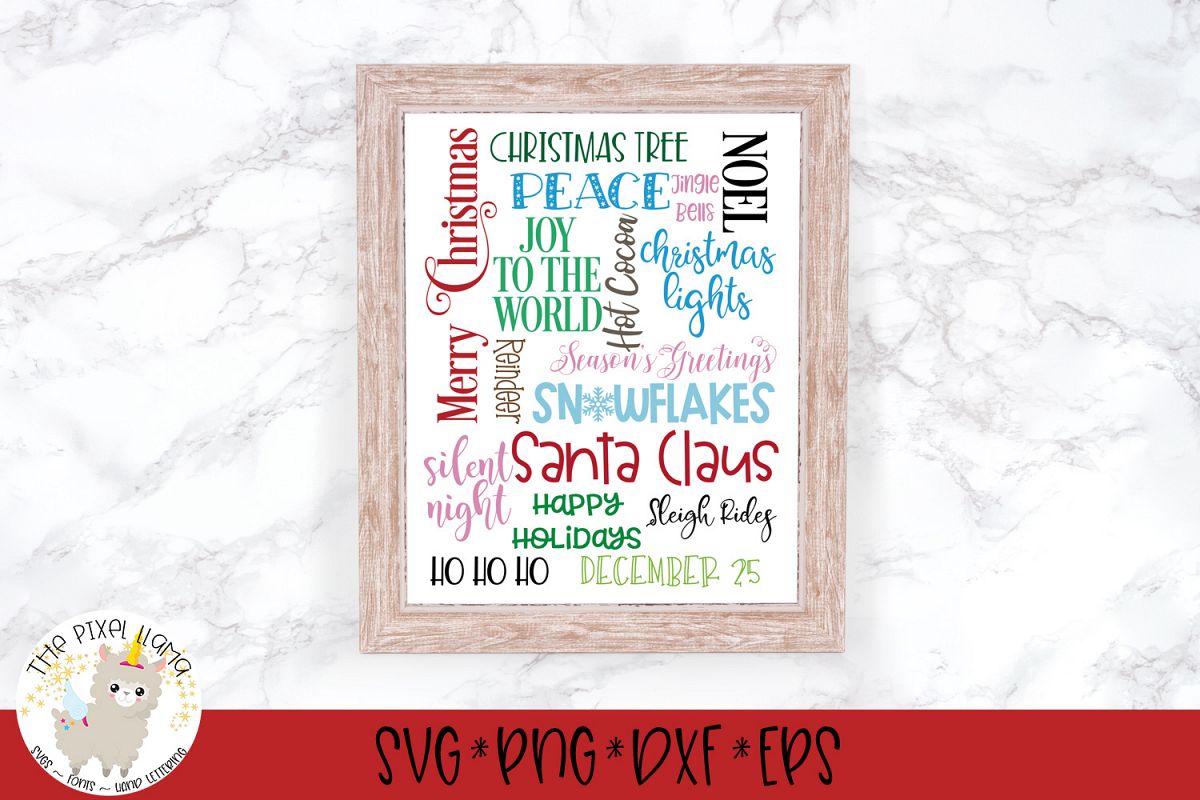 Merry Christmas
CHRISTMAS TREE
NOEL
PEACE
Jingle
Bells
JOY
TO THE
WORLD
Hot Cocoa
christmas
lights
Reindeer
Season's Greetings
SNOWFLAKES
silent
night
Santa Claus
Happy
Holidays
Sleigh Rides
HO HO HO
DECEMBER 25
THE PIXEL LLAMA
SVGS ~ FONTS ~ HAND LETTERING
SVG*PNG*DXF*EPS